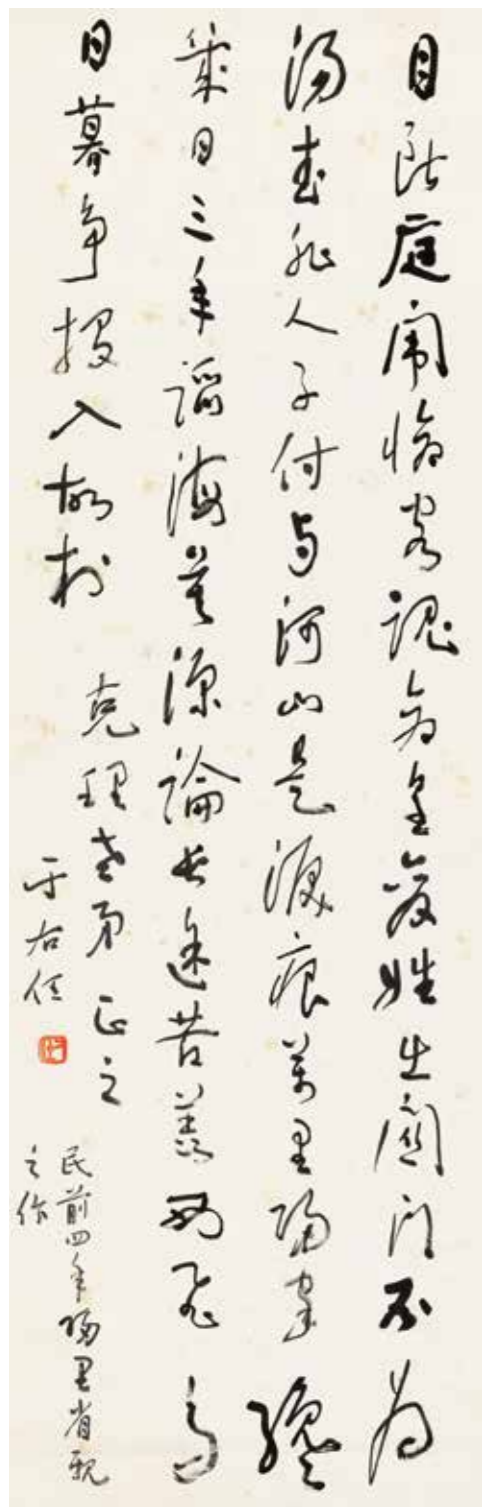 目斷庭闈愴客魂倉皇變姓出關門不為
湯武非人子付与河山是淚痕萬里歸家纔
幾日三年蹈海莫深論長途苦羨西飛鳥
日暮爭投入故村
克理老弟正之
于右任
民前四年歸里省親
之作